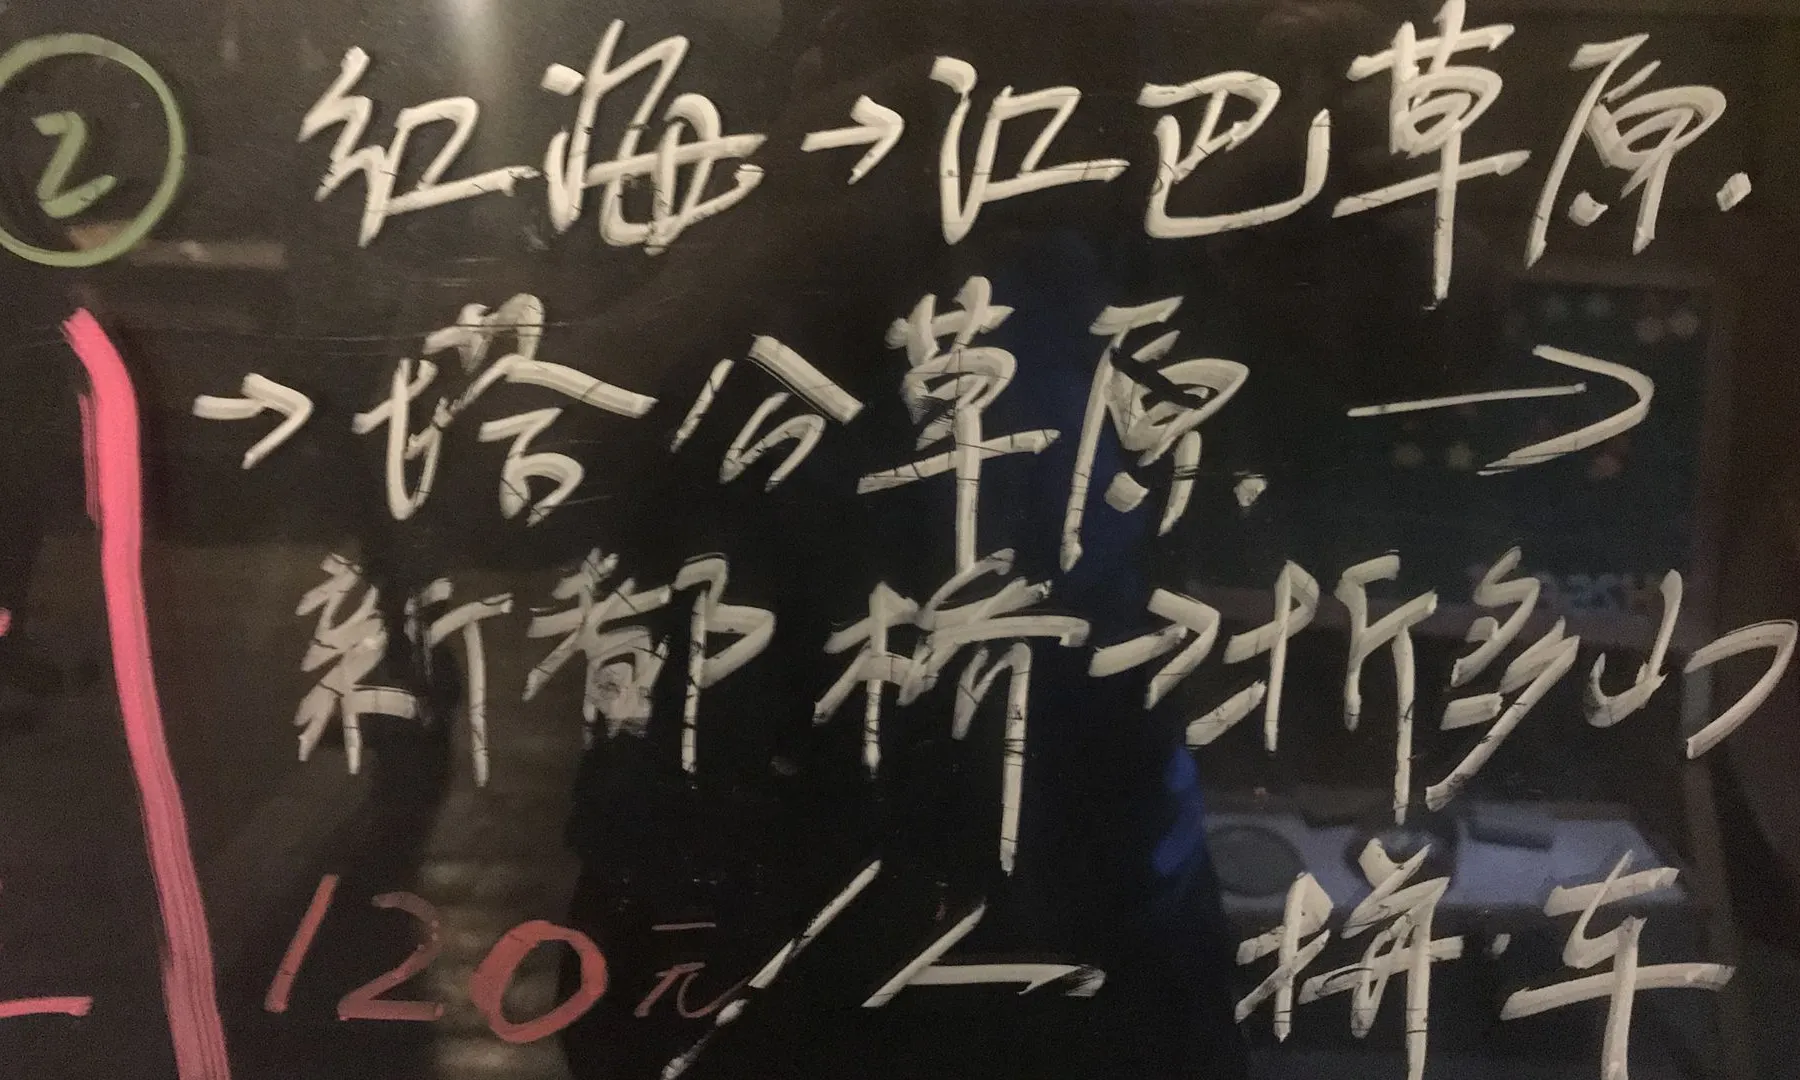 ② 红海→江巴草原.
→塔公草原.→
新都桥→折多山
120元/人 拼车